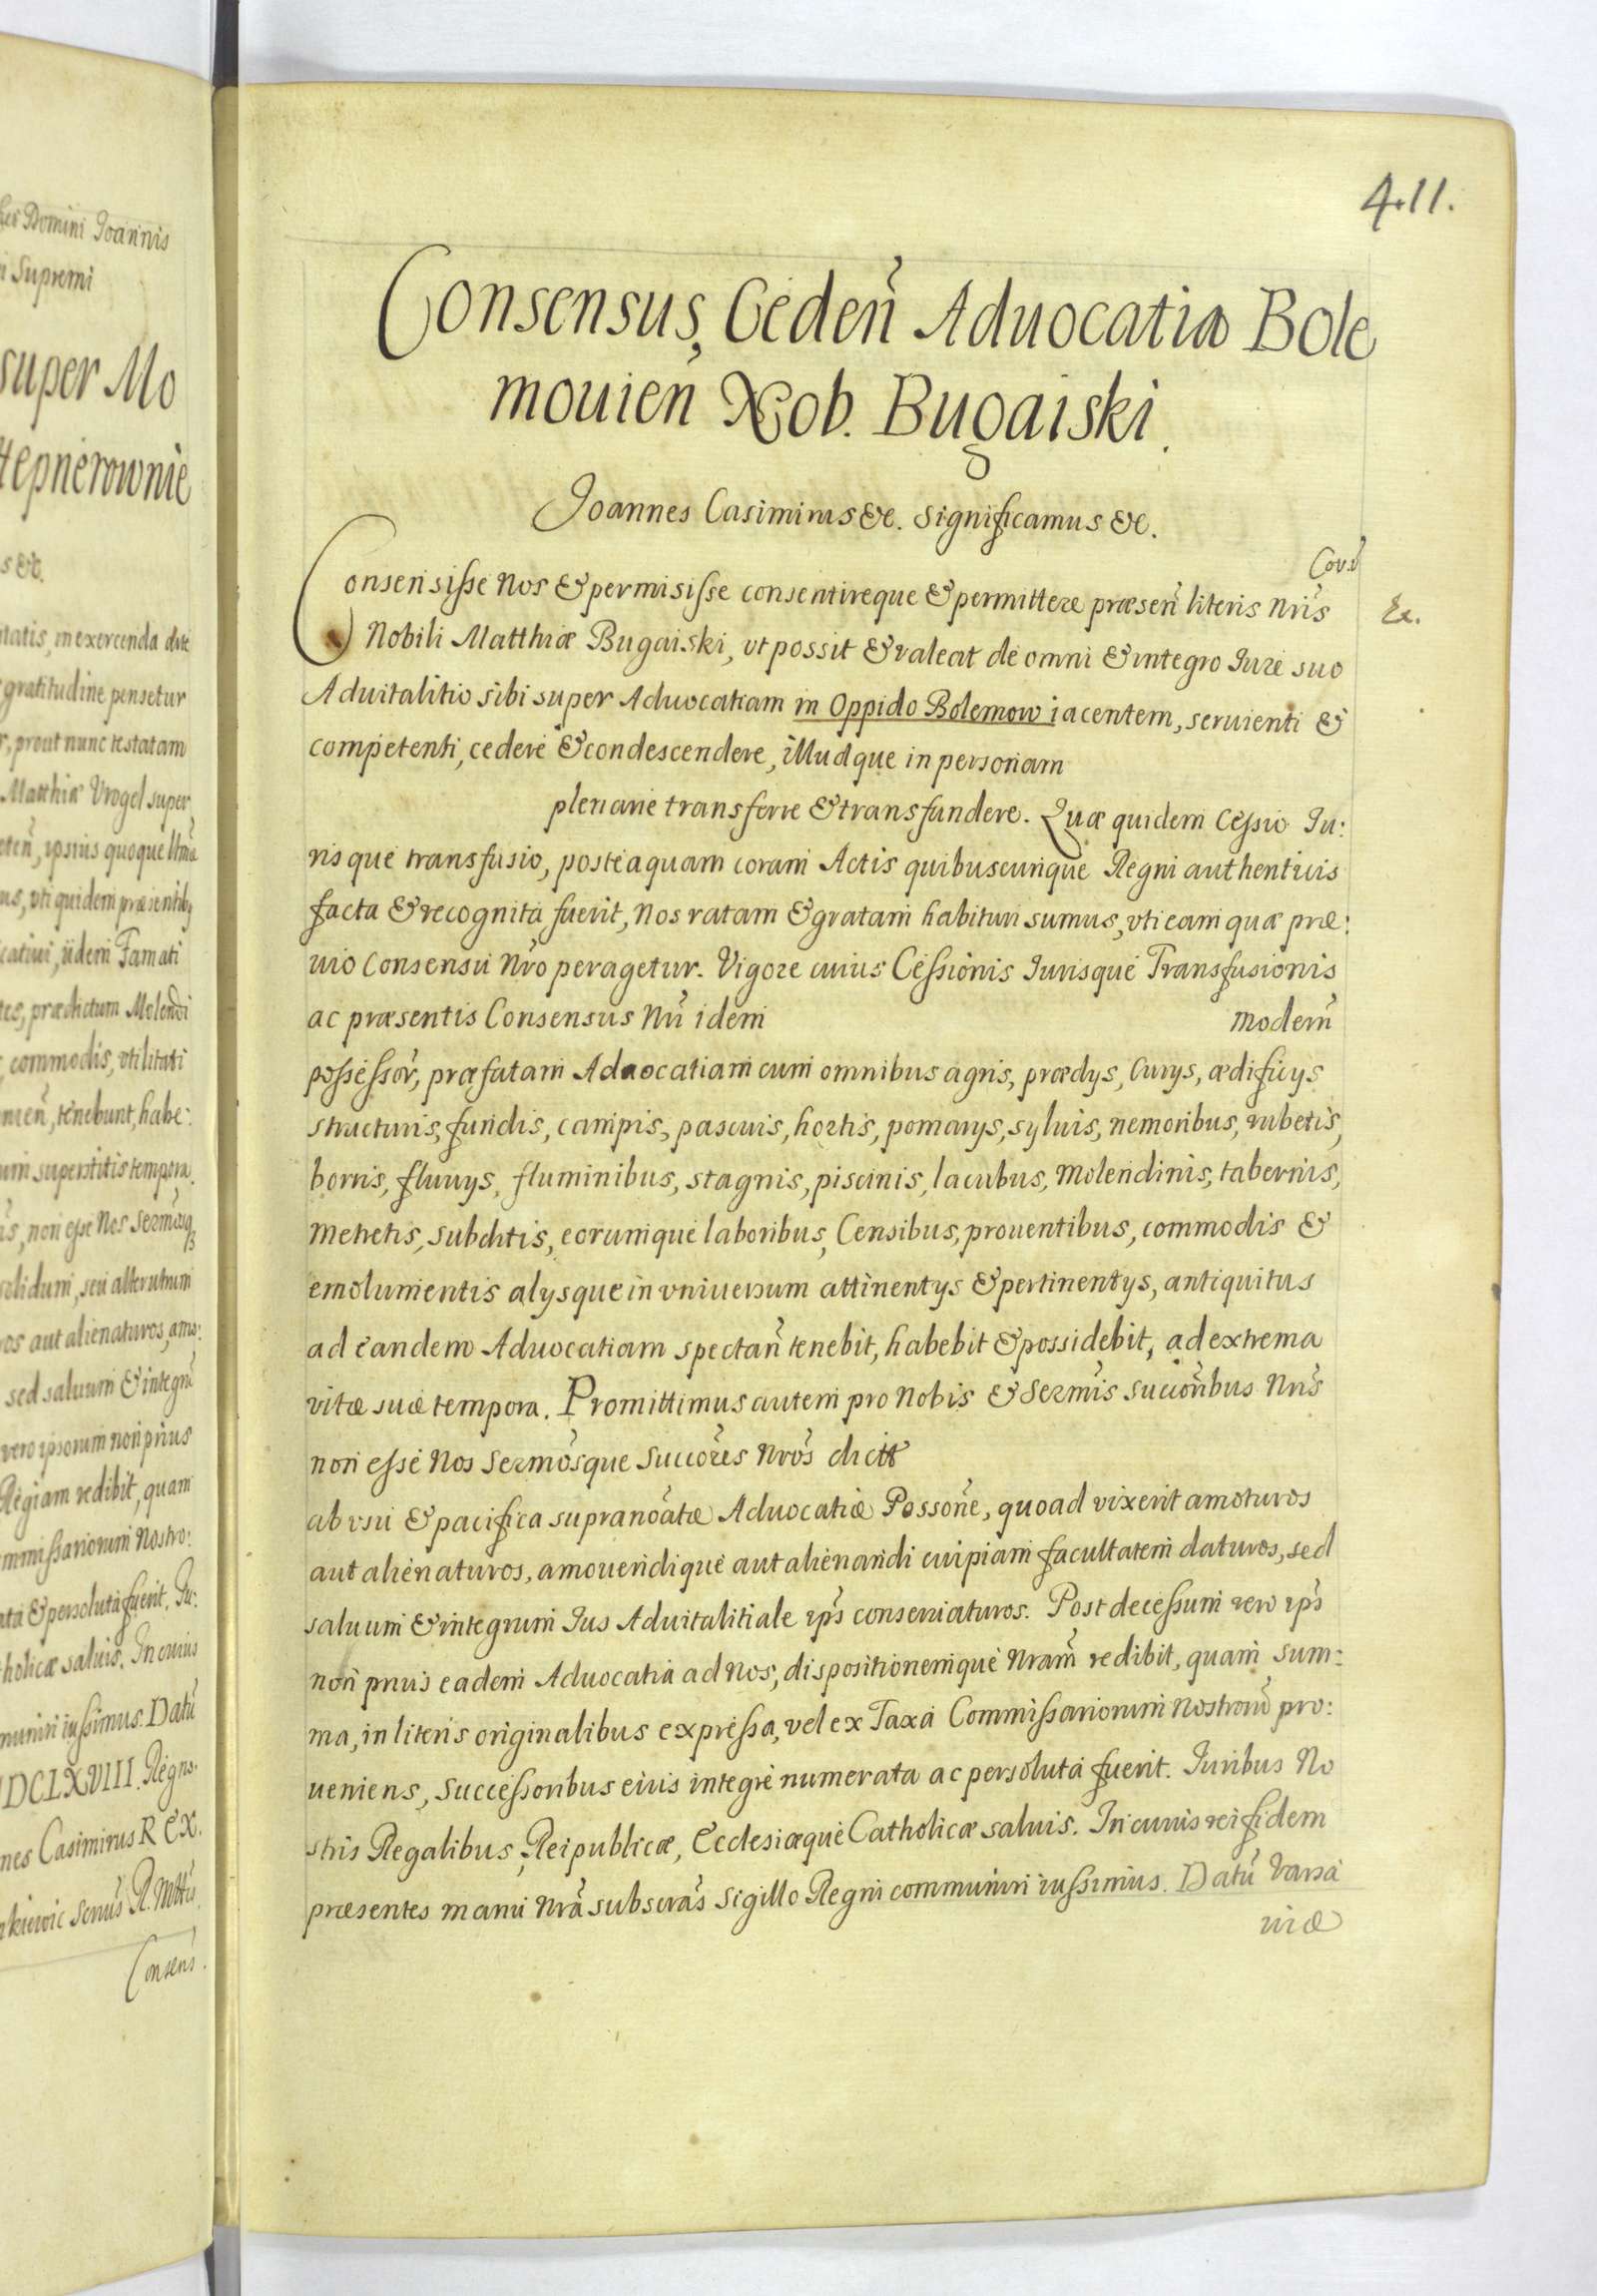 hes Domini Joannis
i Supremi
super Mo
ttepnerownie
s &c.
ntatis, in exercenda dicte
gratitudine pensetur
r, prout nunc testatam
Matthiæ Vrogel super
eteñ, ipsius quoque
us, vti quidem præsentib9
cativi, iidem Famati
tes, prædictum Molendi
, commodis, vtilitati
nieñ, tenebunt, habe:
um superstitis tempora.
is, non esse Nos
solidum, seu alterutrum
ros aut alienaturos, amo:
sed saluum & integrũ
vero ipsorum non prius
Regiam redibit, quam
mmissariorum Nostro:
ata & persoluta fuerit. Iu:
holicæ saluis. In cuius
muniri iussimus. Datũ
DCLXVIII. Regno.
nes Casimirus REX.
nkiewic R. Mttis
Consens.
411.
Consensus, Cedeñ Aduocatiæ Bole
mouieñ Nob. Bugaiski.
Joannes Casimirus &c. Significamus &c.
Cons
Consensisse Nos & permisisse consentireque & permittere præseñ literis Nr̃is
Ex.
Nobili Matthiæ Bugaiski, vt possit & valeat de omni & integro Iure suo
Aduitalitio sibi super Aduocatiam in Oppido Bolemow iacentem, seruienti &
competenti, cedere & condescendere, illudque in personam
plenarie transferre & transfundere. Quæ quidem Cessio Iu:
risque transfusio, posteaquam coram Actis quibuscunque Regni authenticis
facta & recognita fuerit, Nos ratam & gratam habituri sumus, vti eam quæ præ:
uio Consensu Nr̃o peragetur. Vigore cuius Cessionis Iurisque Transfusionis
ac præsentis Consensus Nr̃i idem modern̄
possessor, præfatam Aduocatiam cum omnibus agris, prædys, Curys, ædificys
structuris, fundis, campis, pascuis, hortis, pomarys, syluis, nemoribus, rubetis,
borris, fluuys, fluminibus, stagnis, piscinis, lacubus, Molendinis, tabernis,
Metretis, subditis, eorumque laboribus, Censibus, prouentibus, commodis &
emolumentis alysque in vniuersum attinentys & pertinentys, antiquitus
ad eandem Aduocatiam spectañ tenebit, habebit & possidebit, ad extrema
vitæ suæ tempora. Promittimus autem pro Nobis & Serm̃is Succoribus Nr̃is
non esse Nos Serm̃osque Succores Nr̃os dictt
ab vsu & pacifica supranõatæ Aduocatiæ Possone, quoad vixerit amoturos
aut alienaturos, amouendique aut alienandi cuipiam facultatem daturos, sed
saluum & integrum Ius Aduitalitiale ip̃s conseruaturos. Post decessum vero ip̃s
non prius eadem Aduocatia ad Nos, dispositionemque Nram̃ redibit, quam sum:
ma, in literis originalibus expressa, vel ex Taxa Commissariorum Nostrorũ pro:
ueniens, Successoribus eius integre numerata ac persoluta fuerit. Iuribus No
stris Regalibus, Reipublicæ, Ecclesiæque Catholicæ saluis. In cuius rei fidem
præsentes manu Nr̃a subscras Sigillo Regni communiri iussimus. Datũ Varsa
uiæ